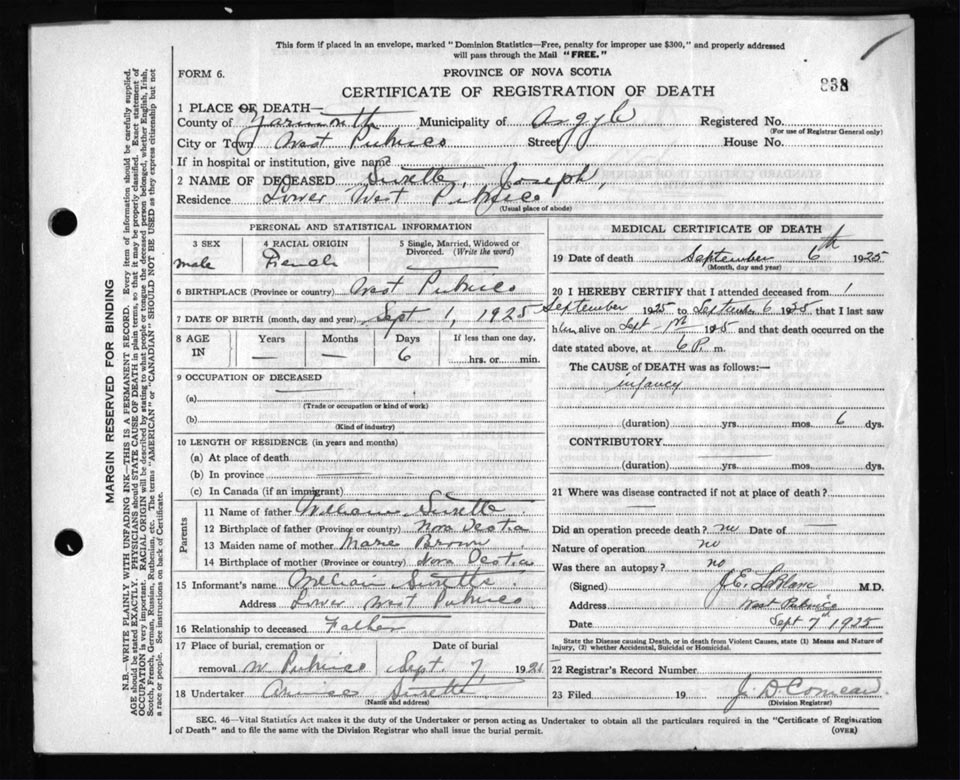 This form if placed in an envelope, marked "Dominion Statistics—Free, penalty for improper use $300," and properly addressed
will pass through the Mail "FREE."
FORM 6.
PROVINCE OF NOVA SCOTIA
838
CERTIFICATE OF REGISTRATION OF DEATH
1 PLACE OF DEATH—
County of Yarmouth Municipality of Argyle Registered No.
(For use of Registrar General only)
City or Town West Pubnico Street House No.
If in hospital or institution, give name
2 NAME OF DECEASED Surette, Joseph,
Residence Lower West Pubnico
(Usual place of abode)
PERSONAL AND STATISTICAL INFORMATION
3 SEX 4 RACIAL ORIGIN 5 Single, Married, Widowed or
Divorced. (Write the word)
male French —
6 BIRTHPLACE (Province or country) West Pubnico
7 DATE OF BIRTH (month, day and year) Sept 1, 1925
8 AGE IN Years Months Days If less than one day,
— — 6 hrs. or min.
9 OCCUPATION OF DECEASED
(a) —
(Trade or occupation or kind of work)
(b)
(Kind of industry)
10 LENGTH OF RESIDENCE (in years and months)
(a) At place of death
(b) In province —
(c) In Canada (if an immigrant)
Parents
11 Name of father William Surette
12 Birthplace of father (Province or country) Nova Scotia
13 Maiden name of mother Marie Brown
14 Birthplace of mother (Province or country) Nova Scotia
15 Informant's name William Surette
Address Lower West Pubnico
16 Relationship to deceased Father
17 Place of burial, cremation or Date of burial
removal W. Pubnico Sept 7, 192
18 Undertaker Surette
(Name and address)
MEDICAL CERTIFICATE OF DEATH
19 Date of death September 6th 1925
(Month, day and year)
20 I HEREBY CERTIFY that I attended deceased from 1
September 1925 to September 6 1925, that I last saw
him, alive on Sept 1925 and that death occurred on
date stated above, at 6 P. m.
The CAUSE of DEATH was as follows:—
infancy
(duration) yrs. mos. 6 dys.
CONTRIBUTORY
(duration) yrs. mos. dys.
21 Where was disease contracted if not at place of death?
—
Did an operation precede death? no Date of —
Nature of operation no
Was there an autopsy? no
(Signed) J.E. LeBlanc M.D.
Address West Pubnico
Date Sept 7 1925
State the Disease causing Death, or in death from Violent Causes, state (1) Means and Nature of
Injury, (2) whether Accidental, Suicidal or Homicidal.
22 Registrar's Record Number
23 Filed 19 J. D. Comeau
(Division Registrar)
SEC. 46—Vital Statistics Act makes it the duty of the Undertaker or person acting as Undertaker to obtain all the particulars required in the "Certificate of Registration
of Death" and to file the same with the Division Registrar who shall issue the burial permit.
(OVER)
MARGIN RESERVED FOR BINDING
N.B.—WRITE PLAINLY WITH UNFADING INK—THIS IS A PERMANENT RECORD. Every item of information should be carefully supplied.
AGE should be stated EXACTLY. PHYSICIANS should STATE CAUSE OF DEATH in plain terms, so that it may be properly classified. Exact statement of
OCCUPATION is very important. RACIAL ORIGIN will be described by stating to what people or tongue the deceased person belonged, whether English, Irish,
Scotch, French, German, Russian, Ruthenian, etc. The terms "AMERICAN" or "CANADIAN" SHOULD NOT BE USED as they express citizenship but not
a race or people. See instructions on back of Certificate.